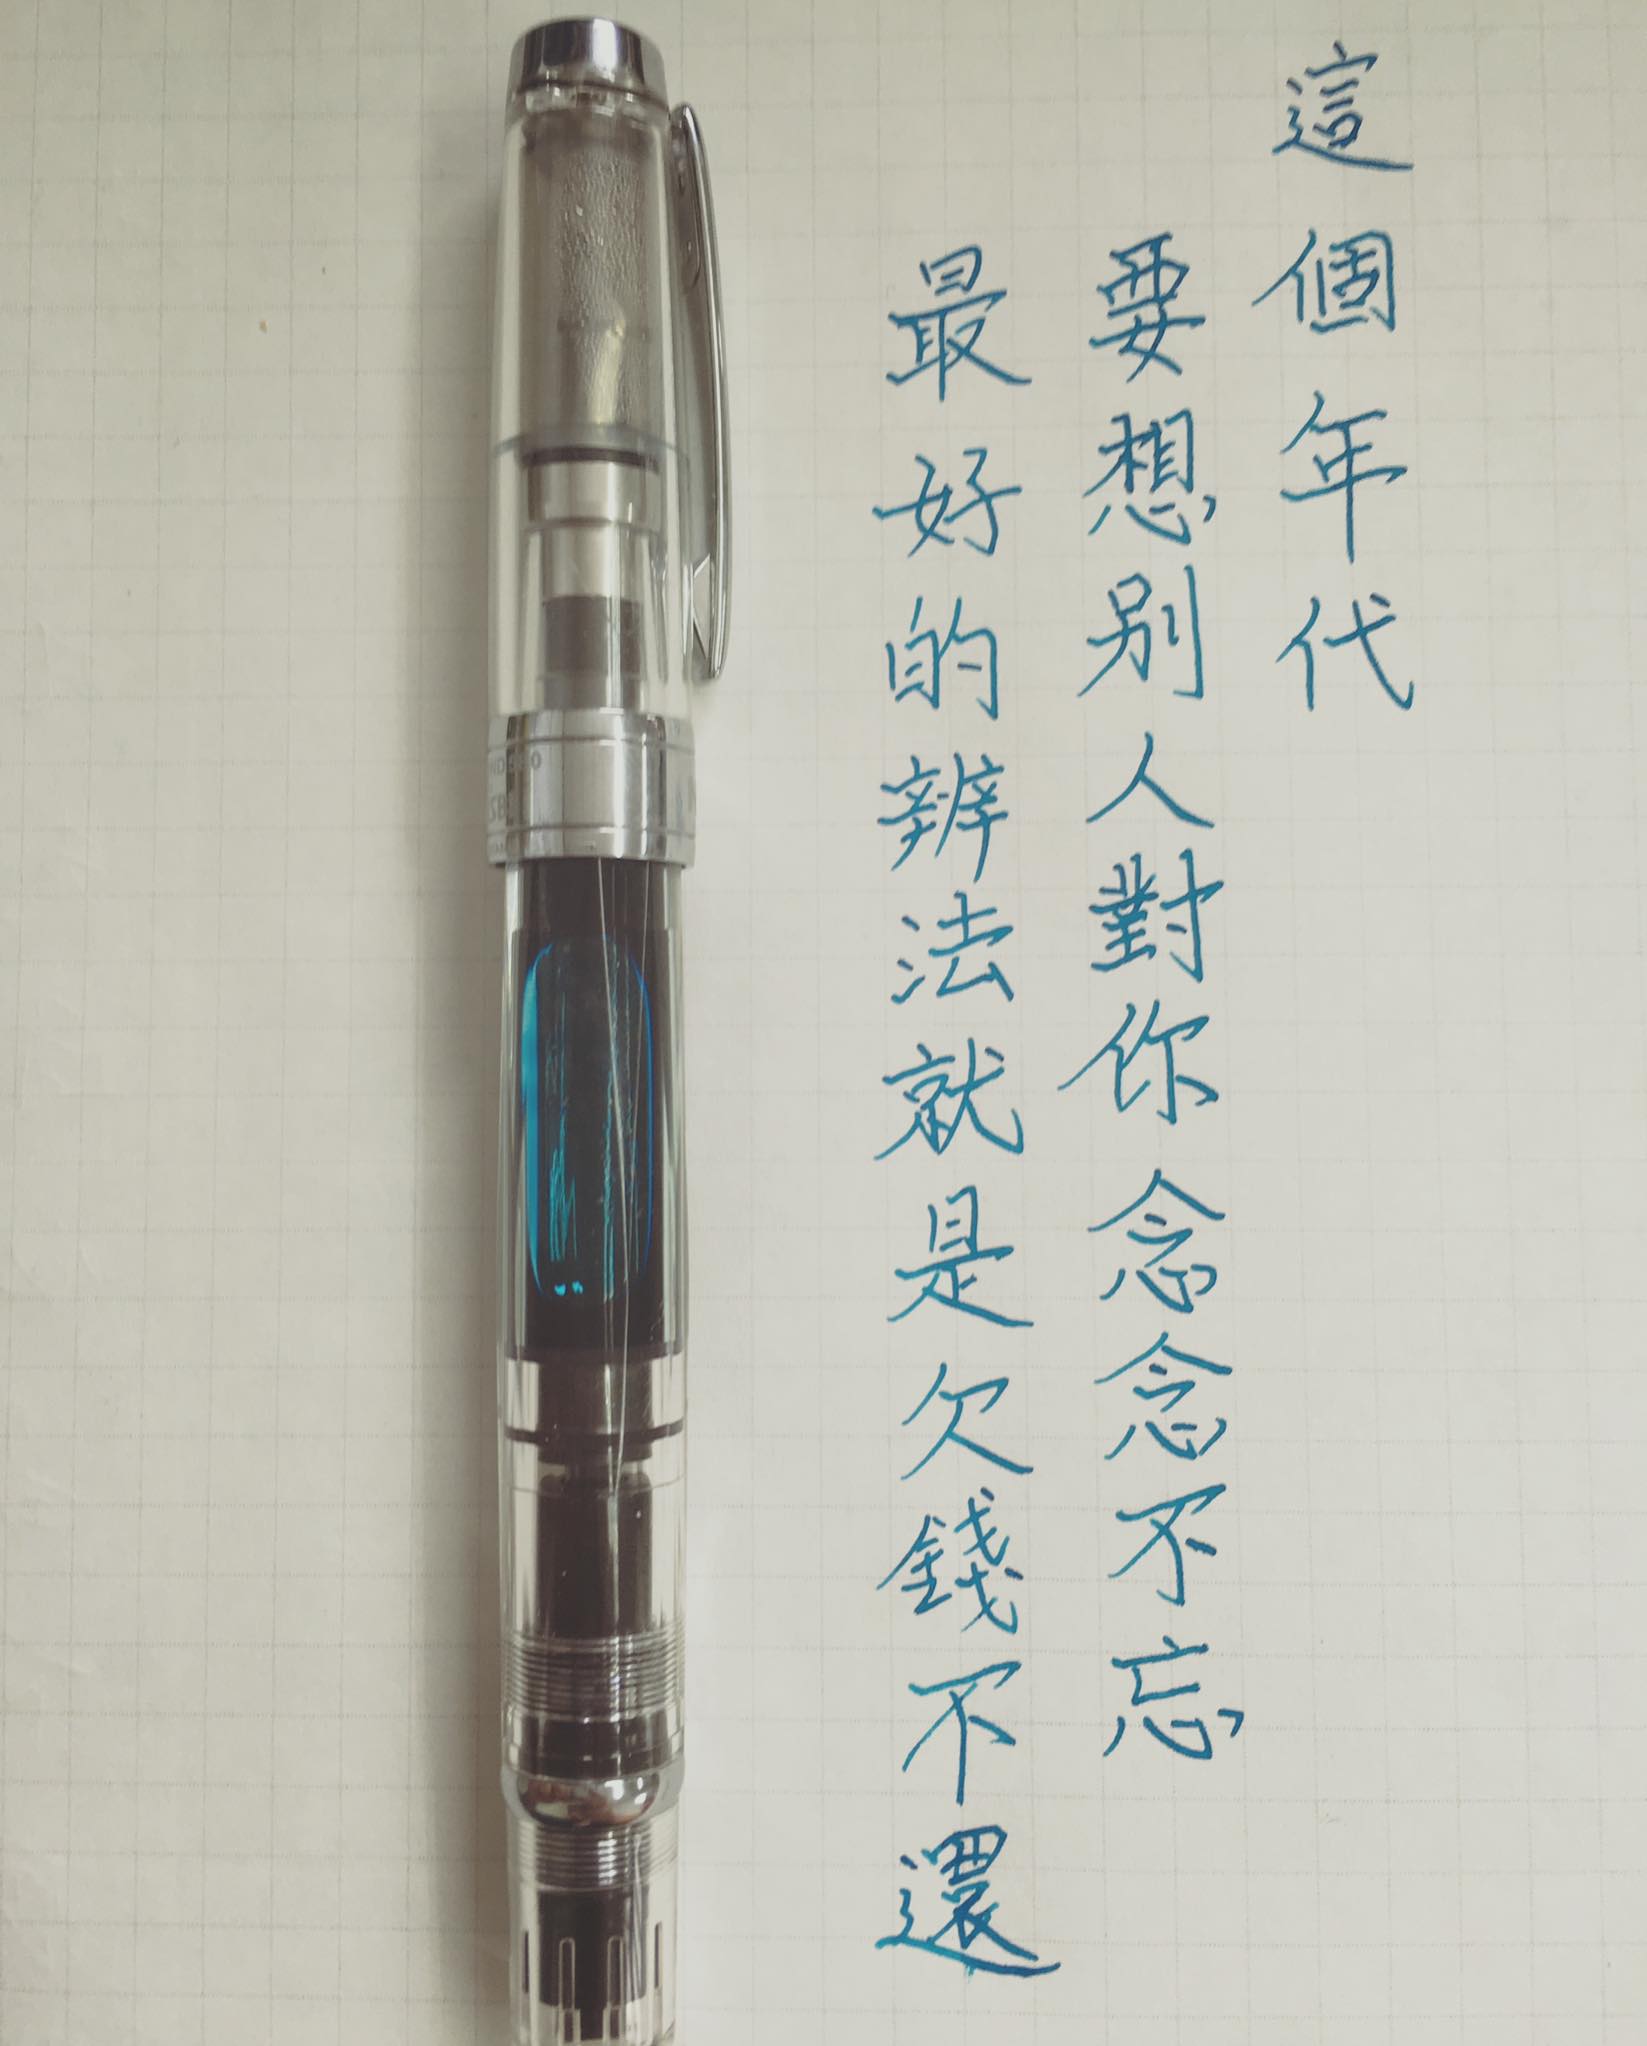 這個年代
要想別人對你念念不忘
最好的辦法就是欠錢不還